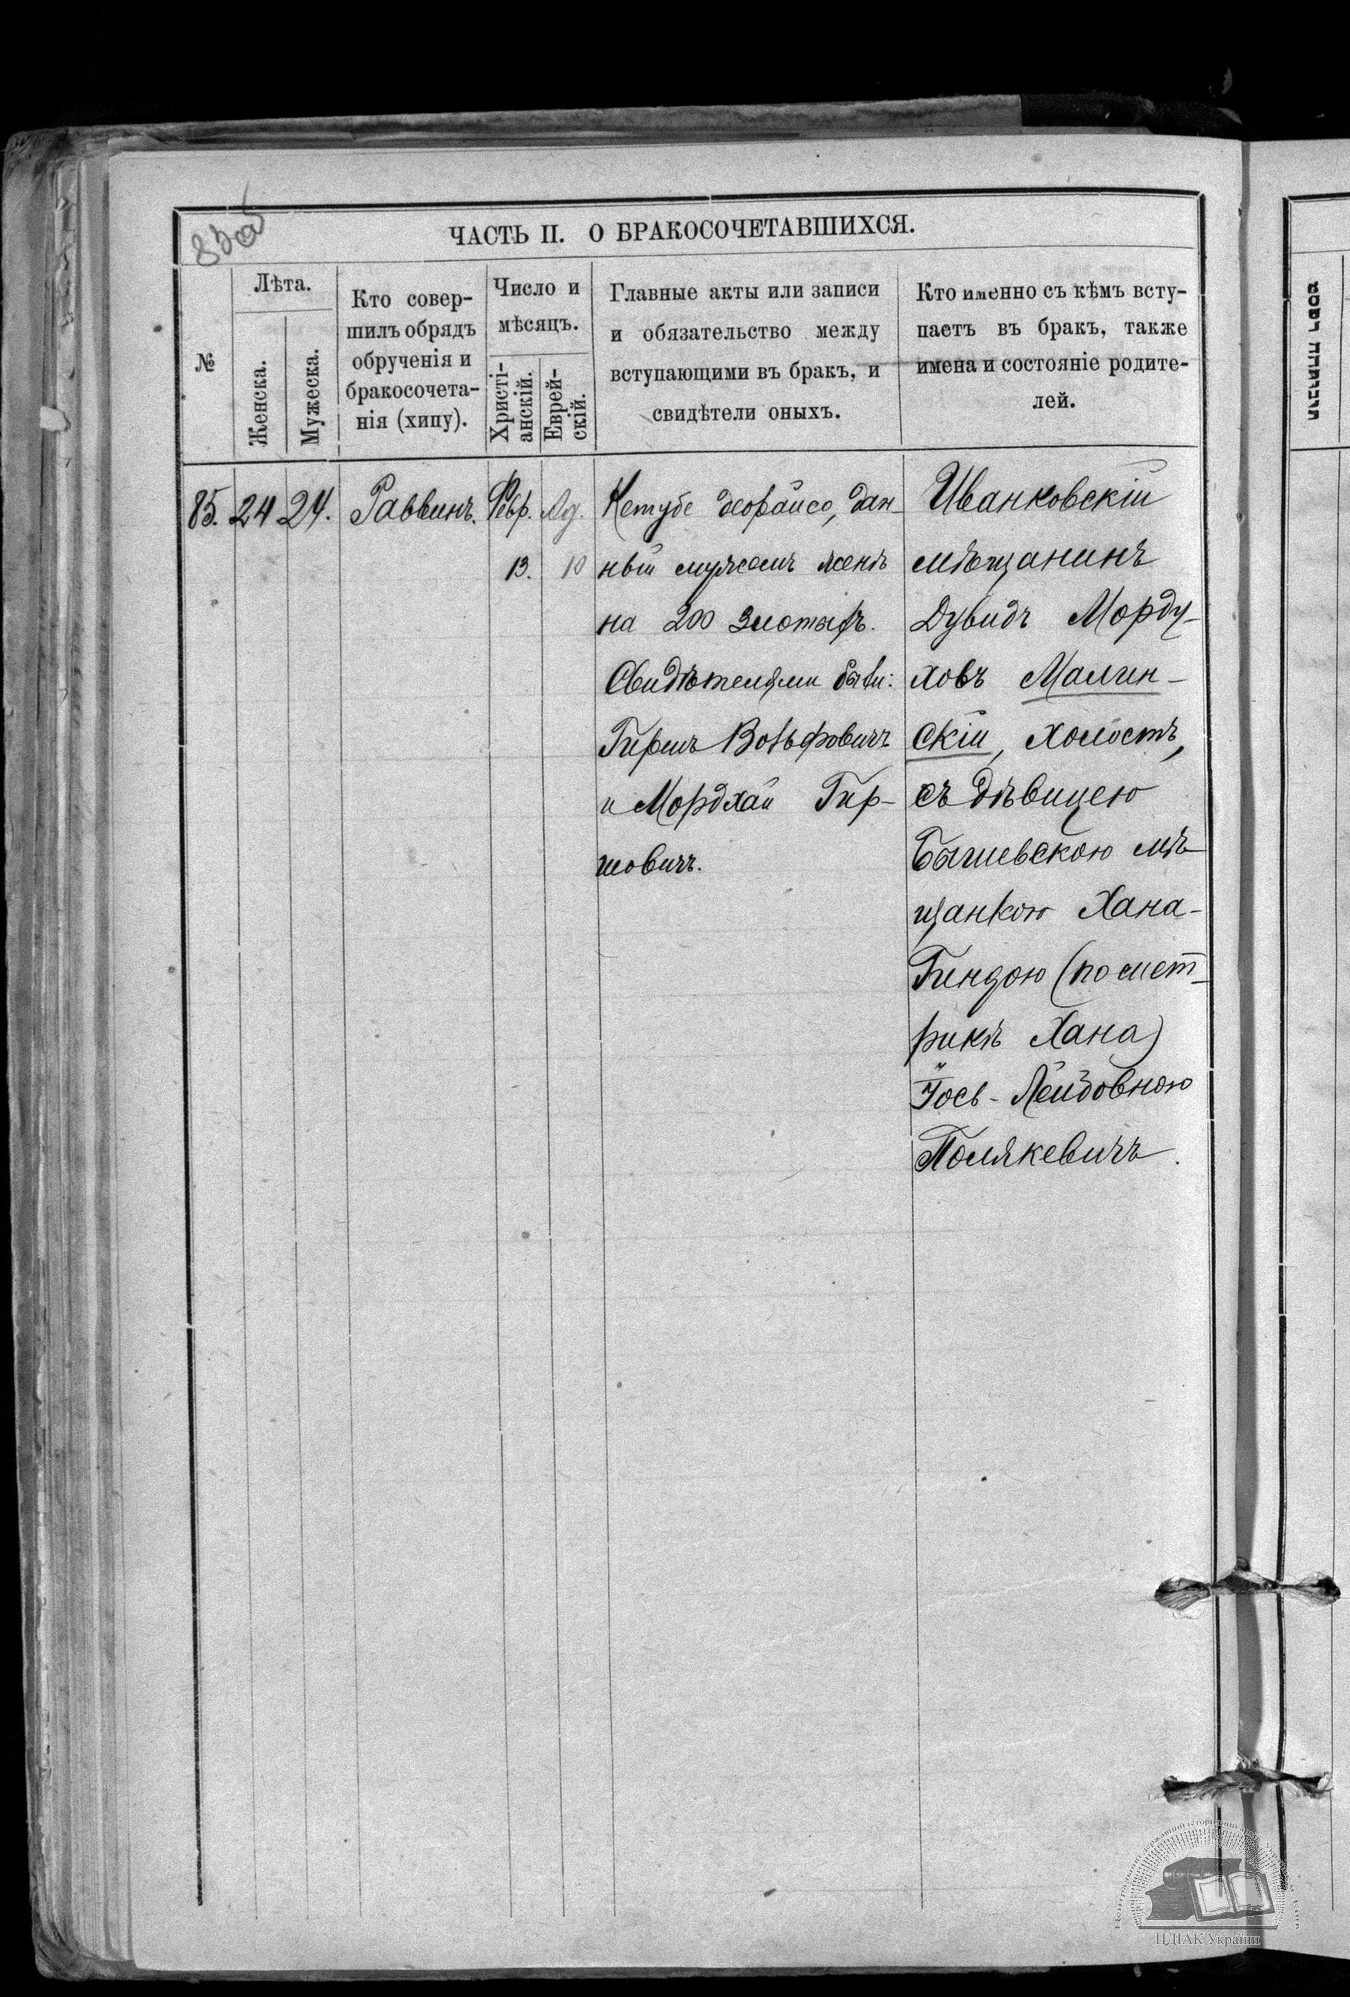 ЧАСТЬ II. О БРАКОСОЧЕТАВШИХСЯ.
№
Лѣта.
Женска.
Мужеска.
Кто совер-
шилъ обрядъ
обрученія и
бракосочета-
нія (хипу).
Число и
мѣсяцъ.
Христі-
анскій.
Еврей-
скій.
Главные акты или записи
и обязательство между
вступающими въ бракъ, и
свидѣтели оныхъ.
Кто именно съ кѣмъ всту-
паетъ въ бракъ, также
имена и состояніе родите-
лей.
85. 24 24. Раввинъ. Февр. Ад.
13. 10
Кетубе деорайсо, дан-
ный мужемъ женѣ
на 200 злотыхъ.
Свидѣтелями были:
Гиршъ Вольфовичъ
и Мордхай Гир-
шовичъ.
Иванковскій
мѣщанинъ
Дувидъ Морду-
ховъ Малин-
скій, холостъ,
съ дѣвицею
Бышевскою мѣ-
щанкою Хана-
Гиндою (по мет-
рикѣ Хана)
Іось-Лейбовною
Полякевичъ.
ЦДІАК України